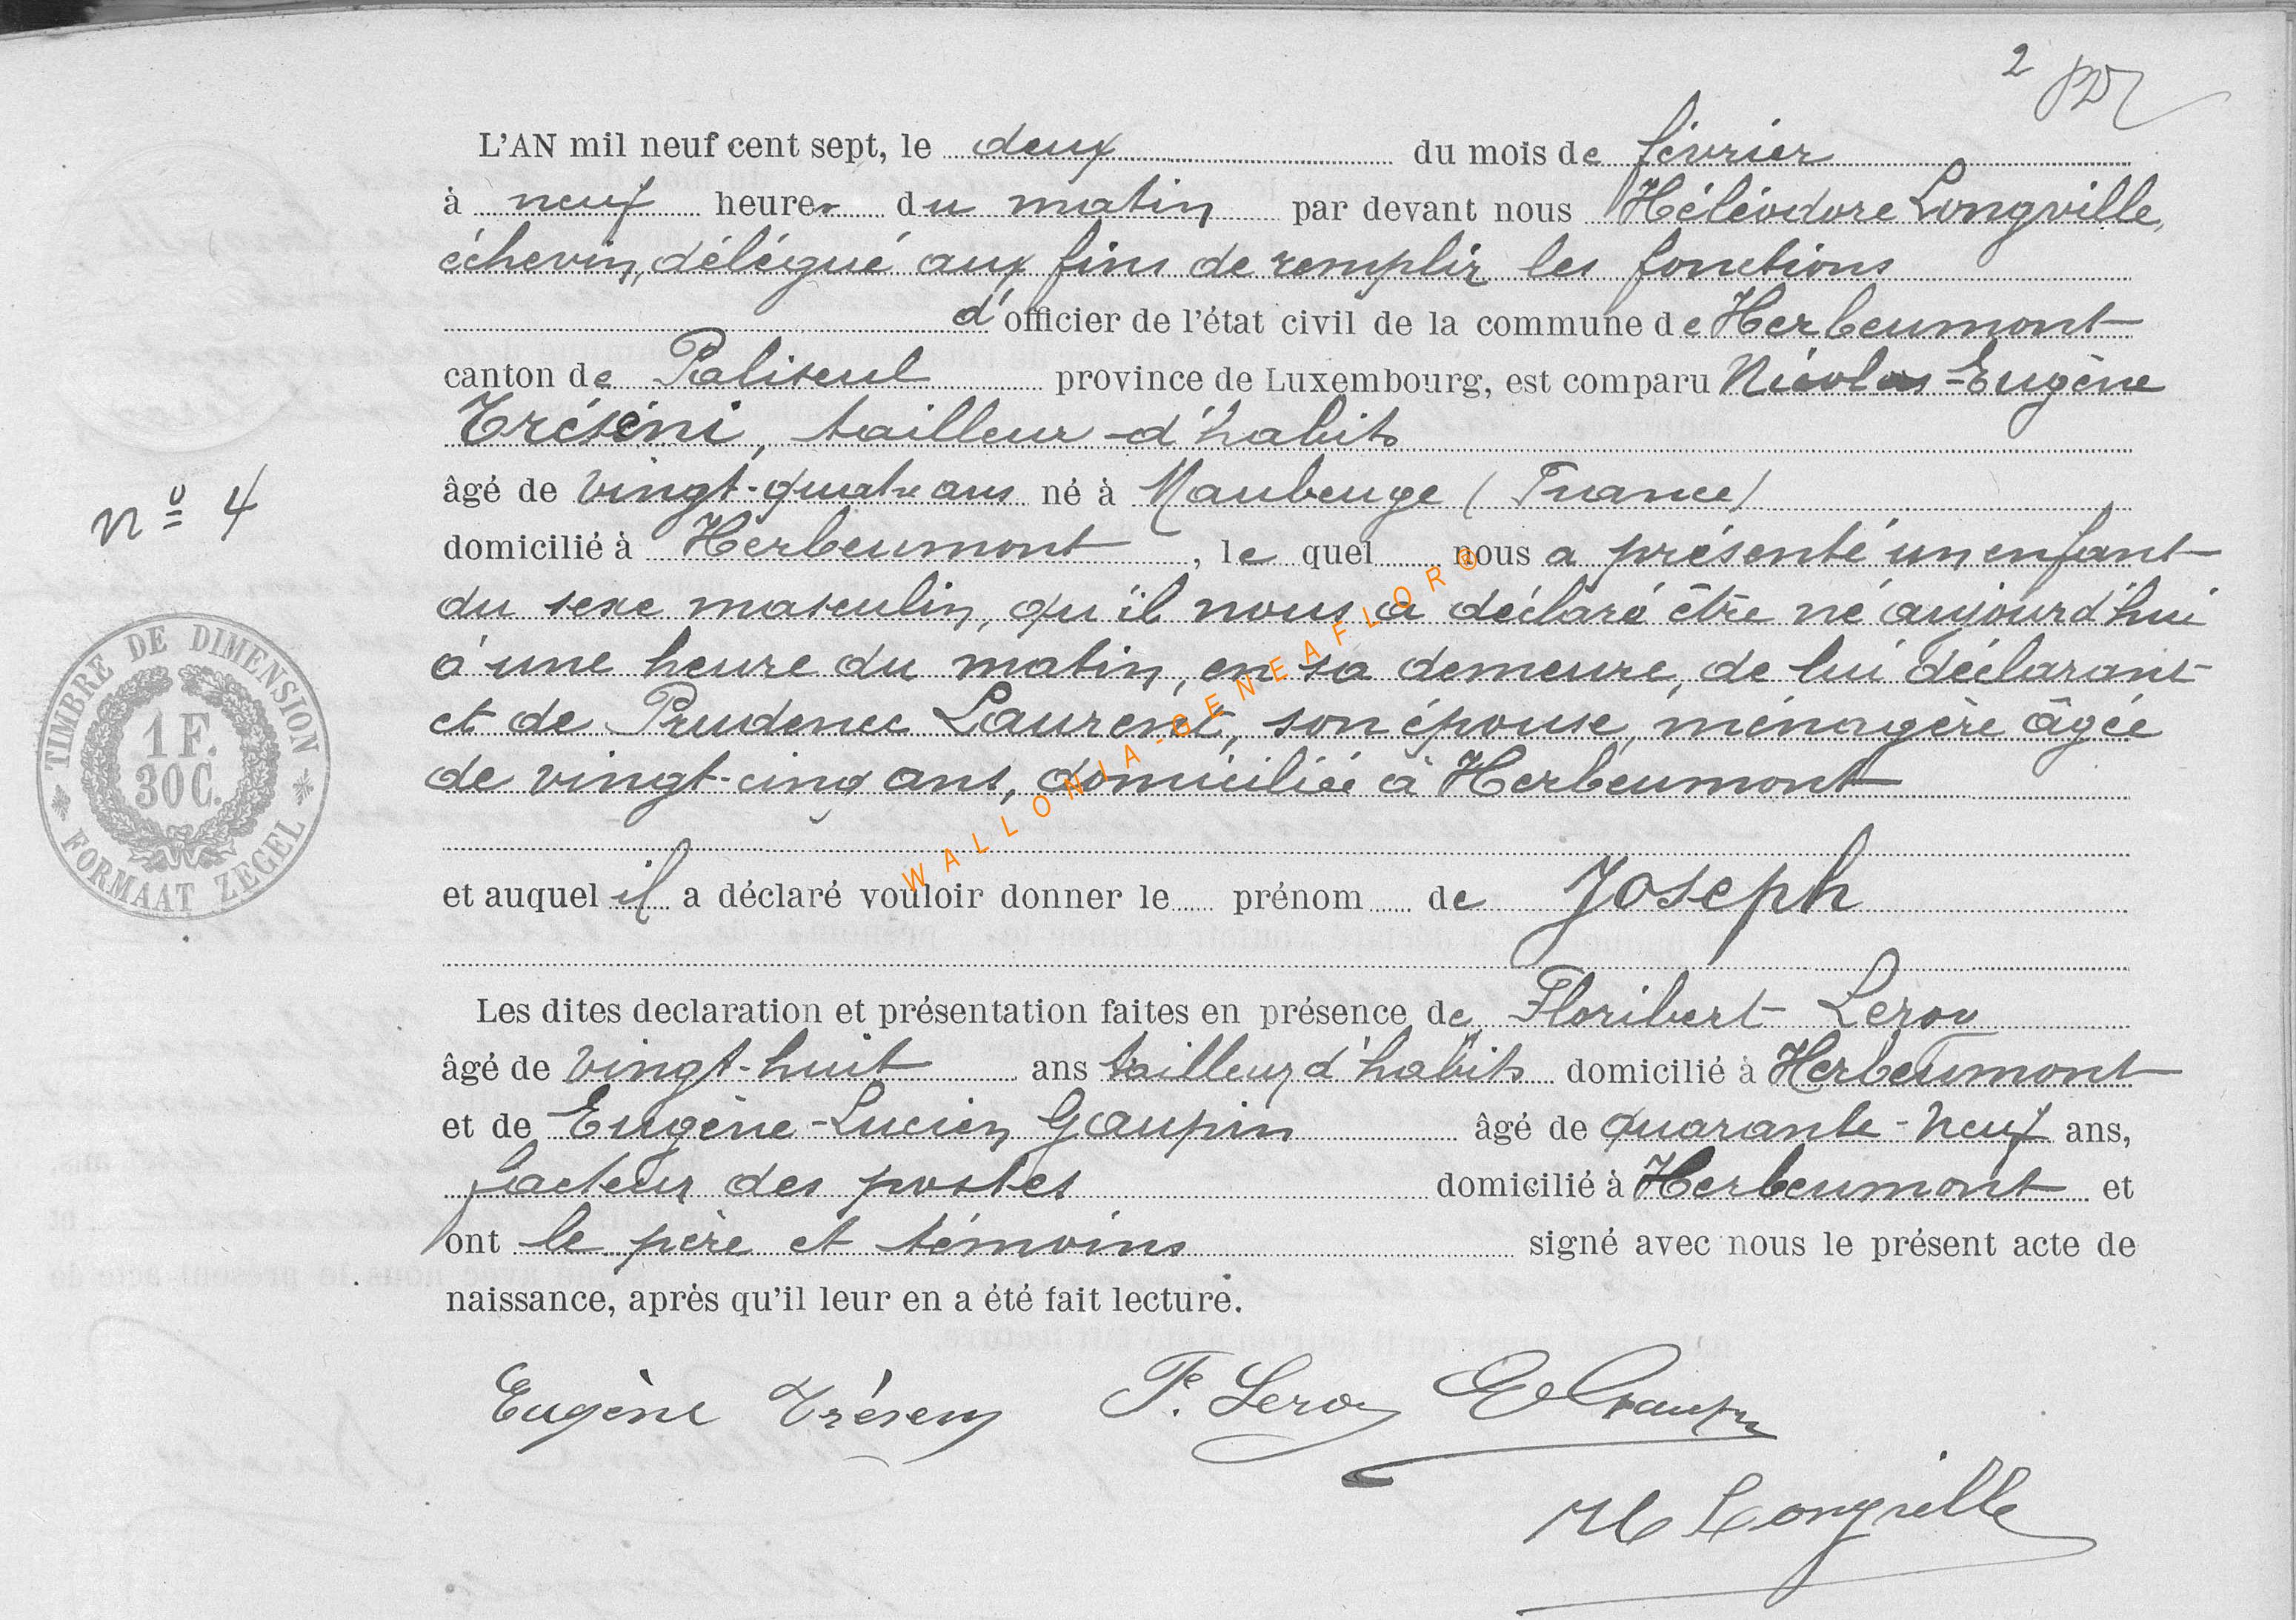 2
L'AN mil neuf cent sept, le deux du mois de février
à neuf heures du matin par devant nous Héléodore Longville,
échevin, délégué aux fins de remplir les fonctions
d'officier de l'état civil de la commune de Herbeumont
canton de Paliseul province de Luxembourg, est comparu Nicolas-Eugène
Tréséni, tailleur d'habits
âgé de vingt-quatre ans né à Maubeuge (France)
nº 4
domicilié à Herbeumont, le quel nous a présenté un enfant
du sexe masculin, qu'il nous a déclaré être né aujourd'hui
à une heure du matin, en sa demeure, de lui déclarant
et de Prudence Laurent, son épouse, ménagère âgée
de vingt-cinq ans, domiciliée à Herbeumont
TIMBRE DE DIMENSION
1 F.
30 C.
FORMAAT ZEGEL
WALLONIA-GENEAFLOR®
et auquel il a déclaré vouloir donner le prénom de Joseph
Les dites declaration et présentation faites en présence de Floribert Leroy
âgé de vingt-huit ans tailleur d'habits domicilié à Herbeumont
et de Eugène-Lucien Gaupin âgé de quarante-neuf ans,
facteur des postes domicilié à Herbeumont et
ont le père et témoins signé avec nous le présent acte de
naissance, après qu'il leur en a été fait lecture.
Eugène Tréseny F. Leroy E Gaupin
H Longville